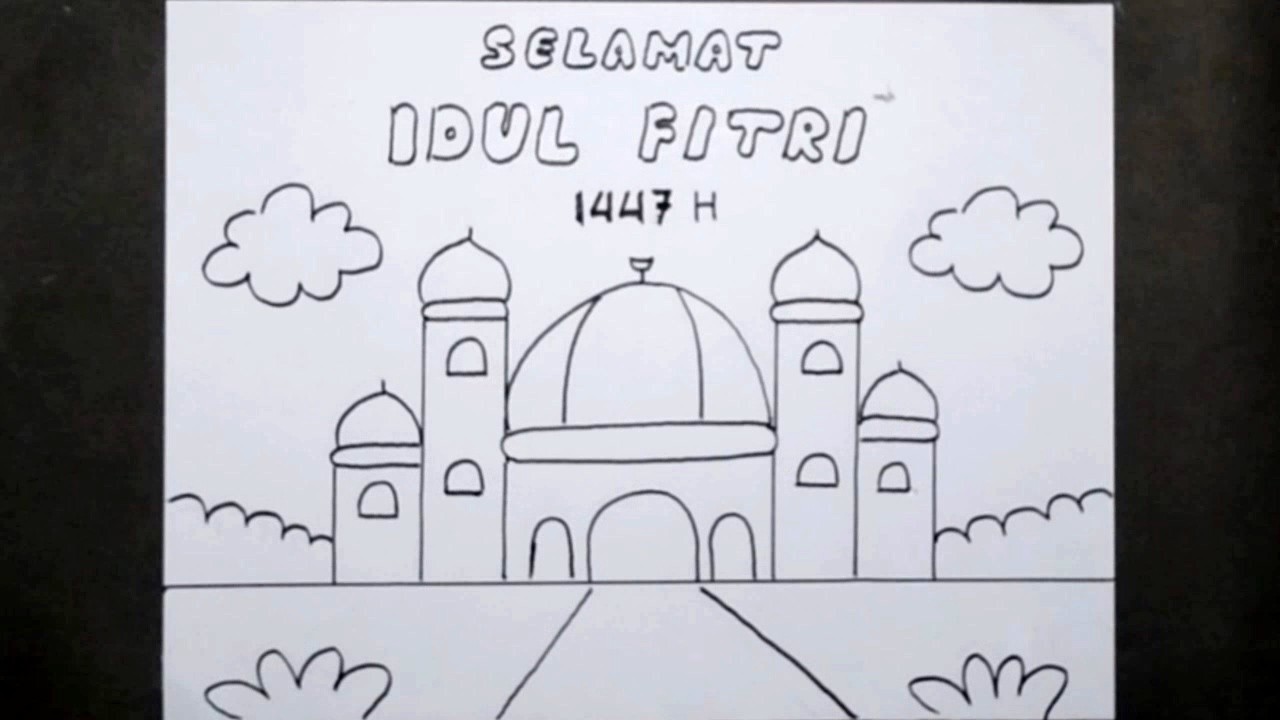 SELAMAT
IDUL FITRI
1447 H